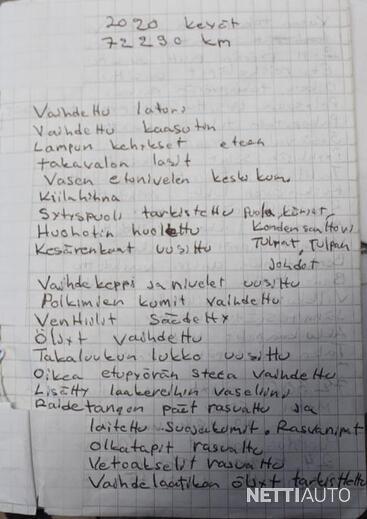 2020 kevät
72290 km
Vaihdettu laturi
Vaihdettu kaasutin
Lampun kehikset eteen
takavalon lasit
Vasen etunivelen keski kum.
Kiilahihna
Sytyspuoli tarkistettu puola, kärjet,
Huohotin huollettu kondensaattori
Kesärenkaat uusittu Tulpat, Tulpan
johdot
Vaihdekeppi ja nivelet uusittu
Polkimien kumit vaihdettu
Venttiilit säädetty
Öljyt vaihdettu
Takaluukun lukko uusittu
Oikea etupyörän vaihdettu
Lisätty laakereihin vaseliini
Raidetangon päät rasvattu ja
laitettu suojakumit. Rasvanipat
Olkatapit rasvattu
Vetoakselit rasvattu
Vaihdelaatikon öljyt tarkistettu
NETTIAUTO